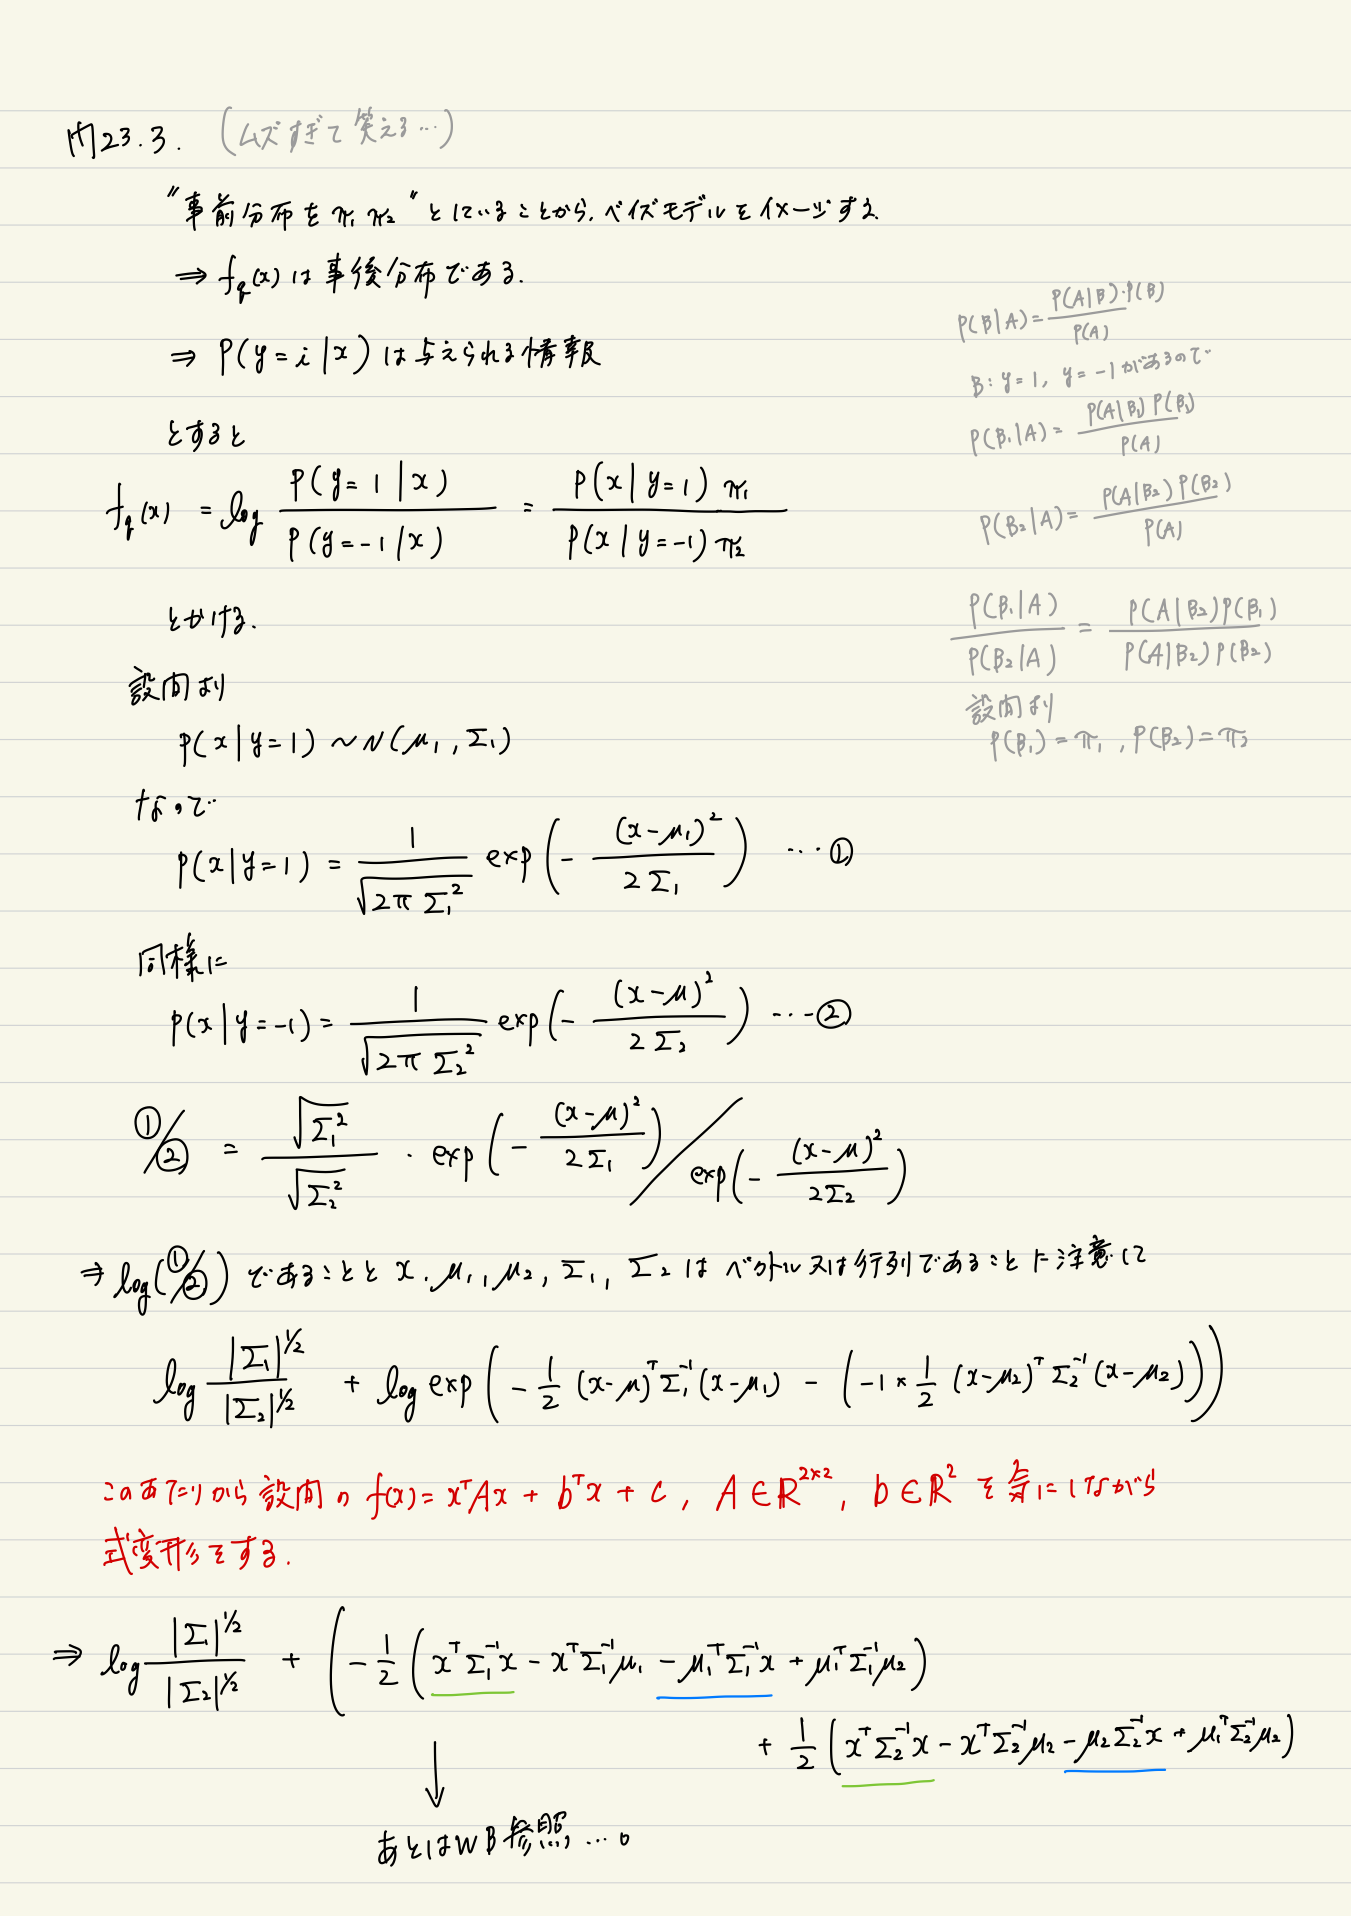 問23.3. (ムズすぎて笑える…)
"事前分布を π₁ π₂" としていることから、ベイズモデルをイメージする
⇒ f_q(x) は事後分布である.
⇒ P(y=i|x) は与えられる情報
とすると
f_q(x) = log P(y=1|x) / P(y=-1|x) = P(x|y=1) π₁ / P(x|y=-1) π₂
とかける.
設問より
P(x|y=1) ~ N(μ₁, Σ₁)
なので
P(x|y=1) = 1/√(2πΣ₁²) exp(- (x-μ₁)² / 2Σ₁) …①
同様に
P(x|y=-1) = 1/√(2πΣ₂²) exp(- (x-μ)² / 2Σ₂) …②
①/② = √Σ₁² / √Σ₂² · exp(- (x-μ)² / 2Σ₁) / exp(- (x-μ)² / 2Σ₂)
⇒ log(①/②) であることと x, μ₁, μ₂, Σ₁, Σ₂ はベクトル又は行列であることに注意して
log |Σ₁|^1/2 / |Σ₂|^1/2 + log exp(- 1/2 (x-μ)ᵀ Σ₁⁻¹ (x-μ₁) - (-1 × 1/2 (x-μ₂)ᵀ Σ₂⁻¹ (x-μ₂)))
このあたりから設問の f(x) = xᵀAx + bᵀx + c, A∈R^2×2, b∈R² を気にしながら
式変形をする.
⇒ log |Σ₁|^1/2 / |Σ₂|^1/2 + (- 1/2 (xᵀΣ₁⁻¹x - xᵀΣ₁⁻¹μ₁ - μ₁ᵀΣ₁⁻¹x + μ₁ᵀΣ₁⁻¹μ₂)
+ 1/2 (xᵀΣ₂⁻¹x - xᵀΣ₂⁻¹μ₂ - μ₂Σ₂⁻¹x + μ₁ᵀΣ₂⁻¹μ₂)
↓
あとはWB参照…。
P(B|A) = P(A|B)·P(B) / P(A)
B: y=1, y=-1があるので
P(B₁|A) = P(A|B₁) P(B₁) / P(A)
P(B₂|A) = P(A|B₂) P(B₂) / P(A)
P(B₁|A) / P(B₂|A) = P(A|B₂)P(B₁) / P(A|B₂)P(B₂)
設問より
P(B₁) = π₁, P(B₂) = π₂